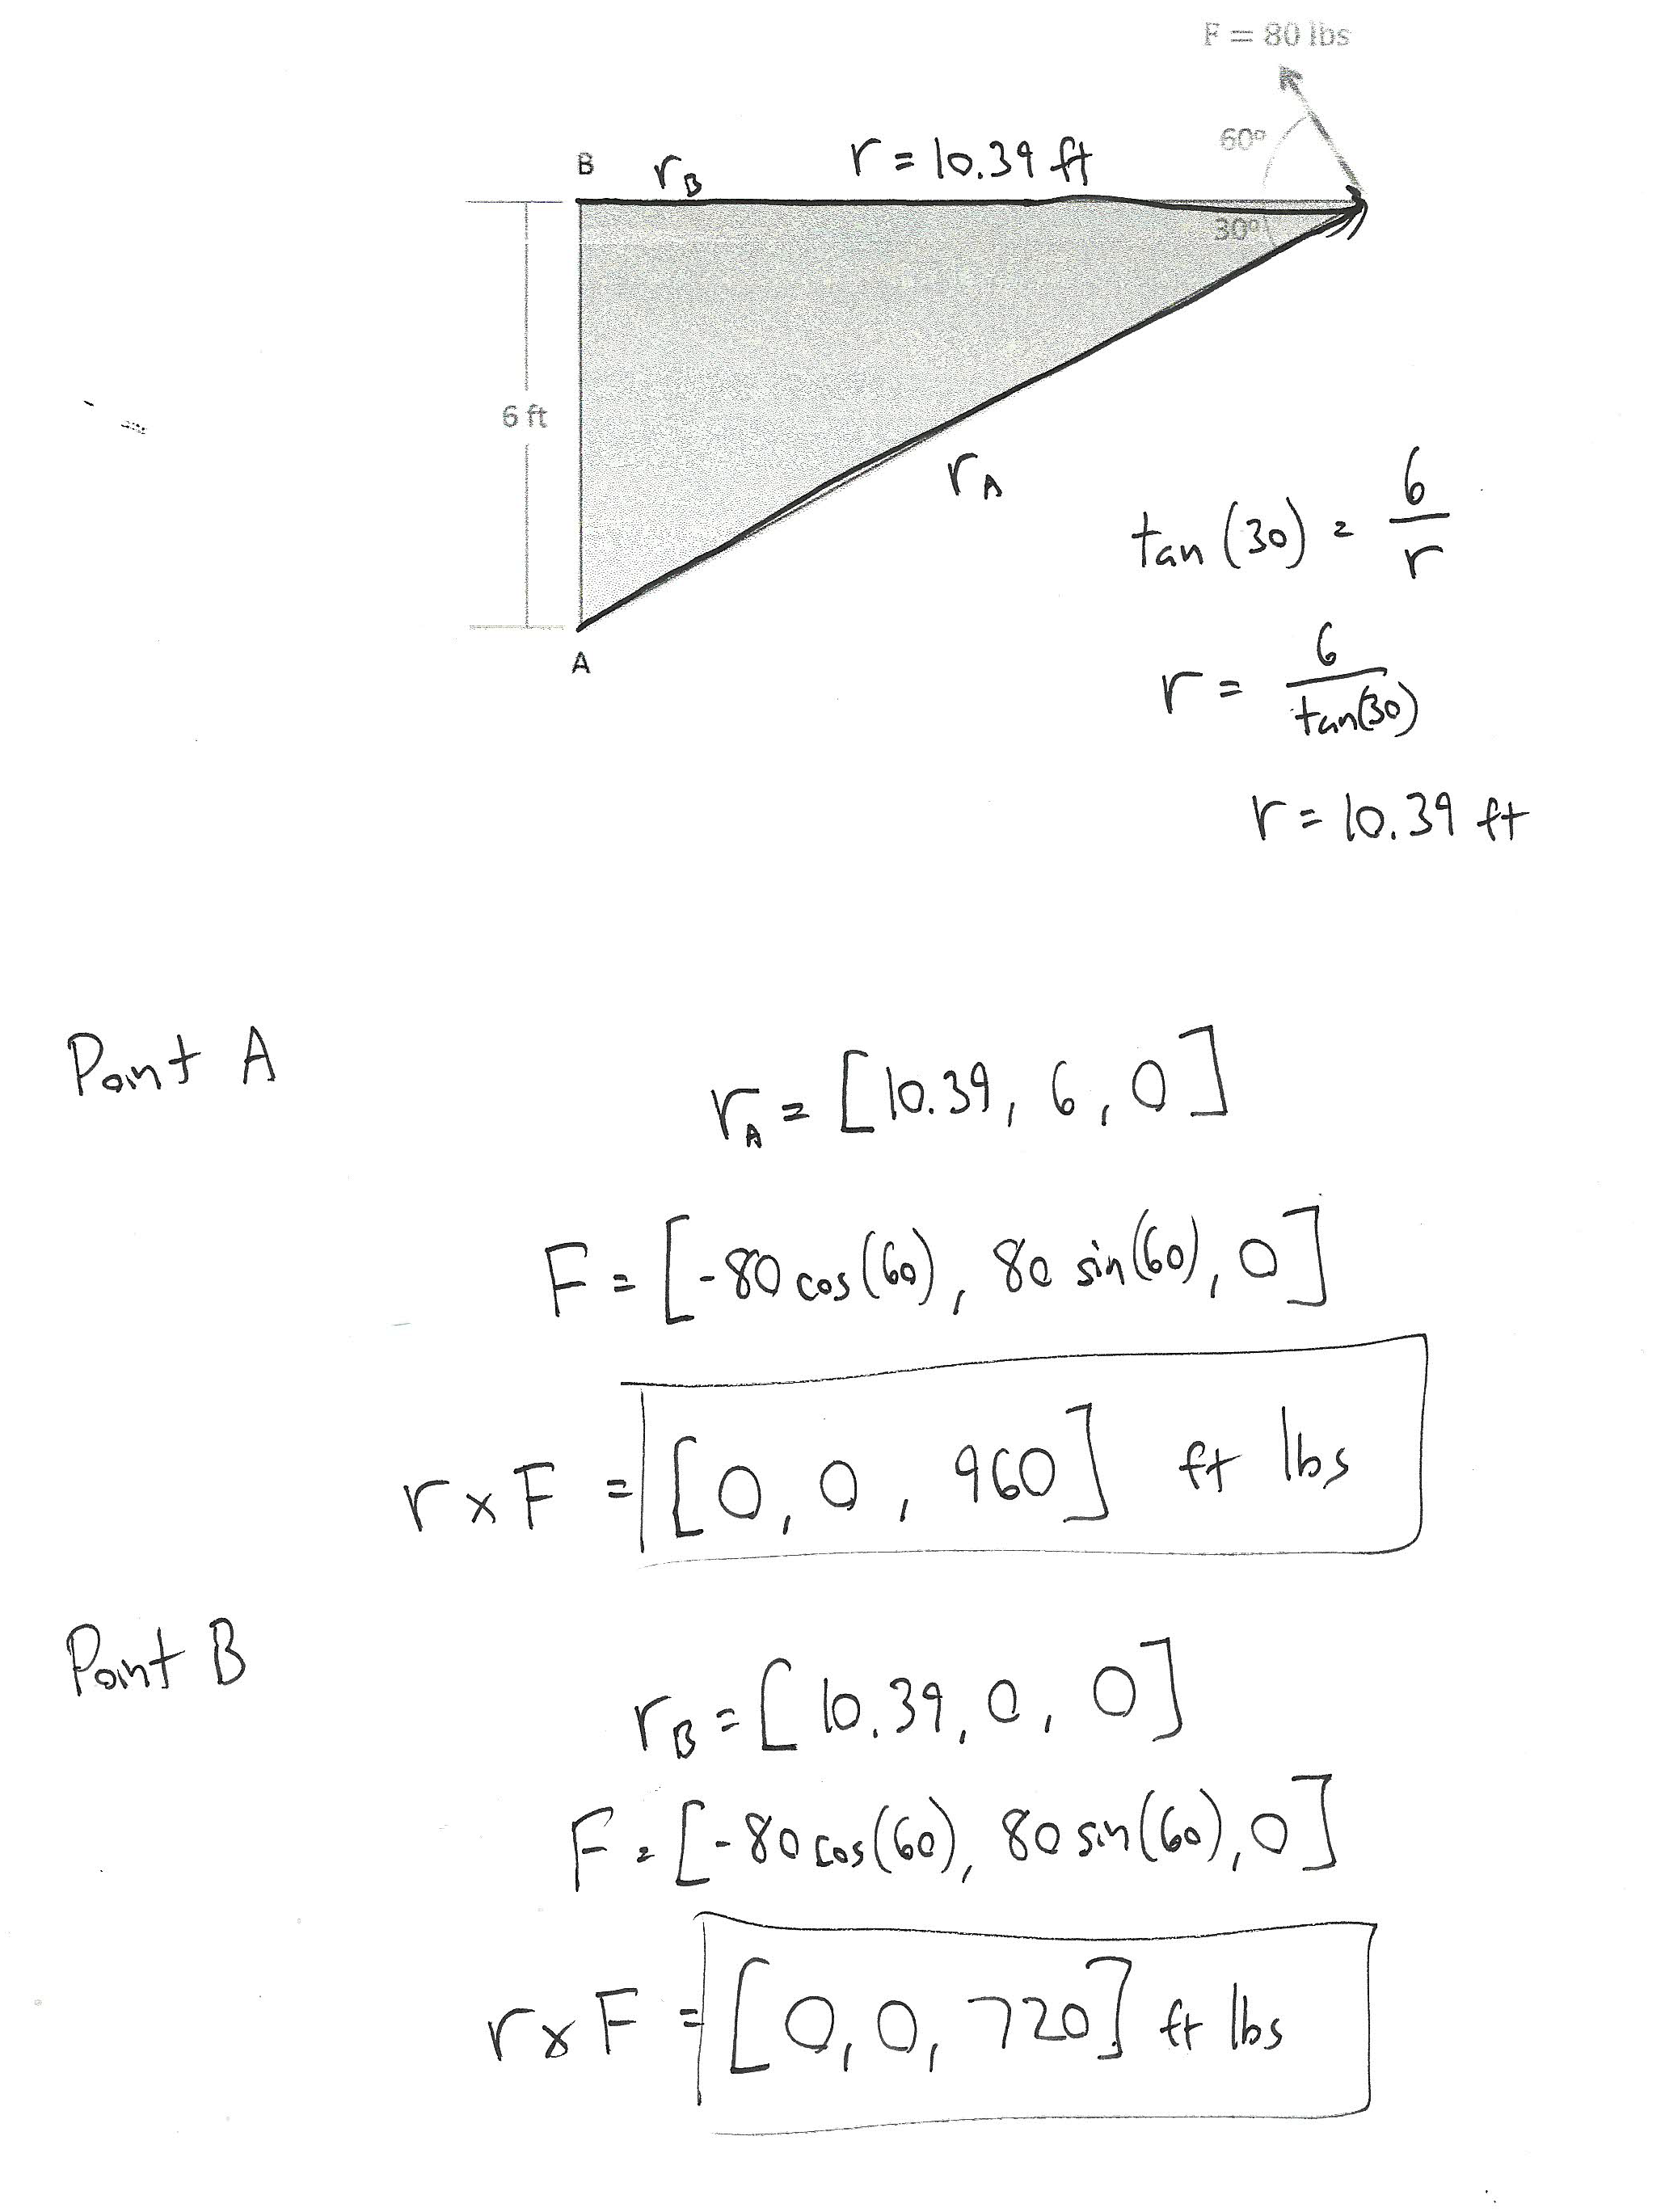 F = 80 lbs
60º
B
r_B
r = 10.39 ft
30º
6 ft
r_A
A
tan (30) = 6/r
r = 6/tan(30)
r = 10.39 ft
Point A
r_A = [10.39, 6, 0]
F = [-80 cos(60), 80 sin(60), 0]
r x F = [0, 0, 960] ft lbs
Point B
r_B = [10.39, 0, 0]
F = [-80 cos(60), 80 sin(60), 0]
r x F = [0, 0, 720] ft lbs